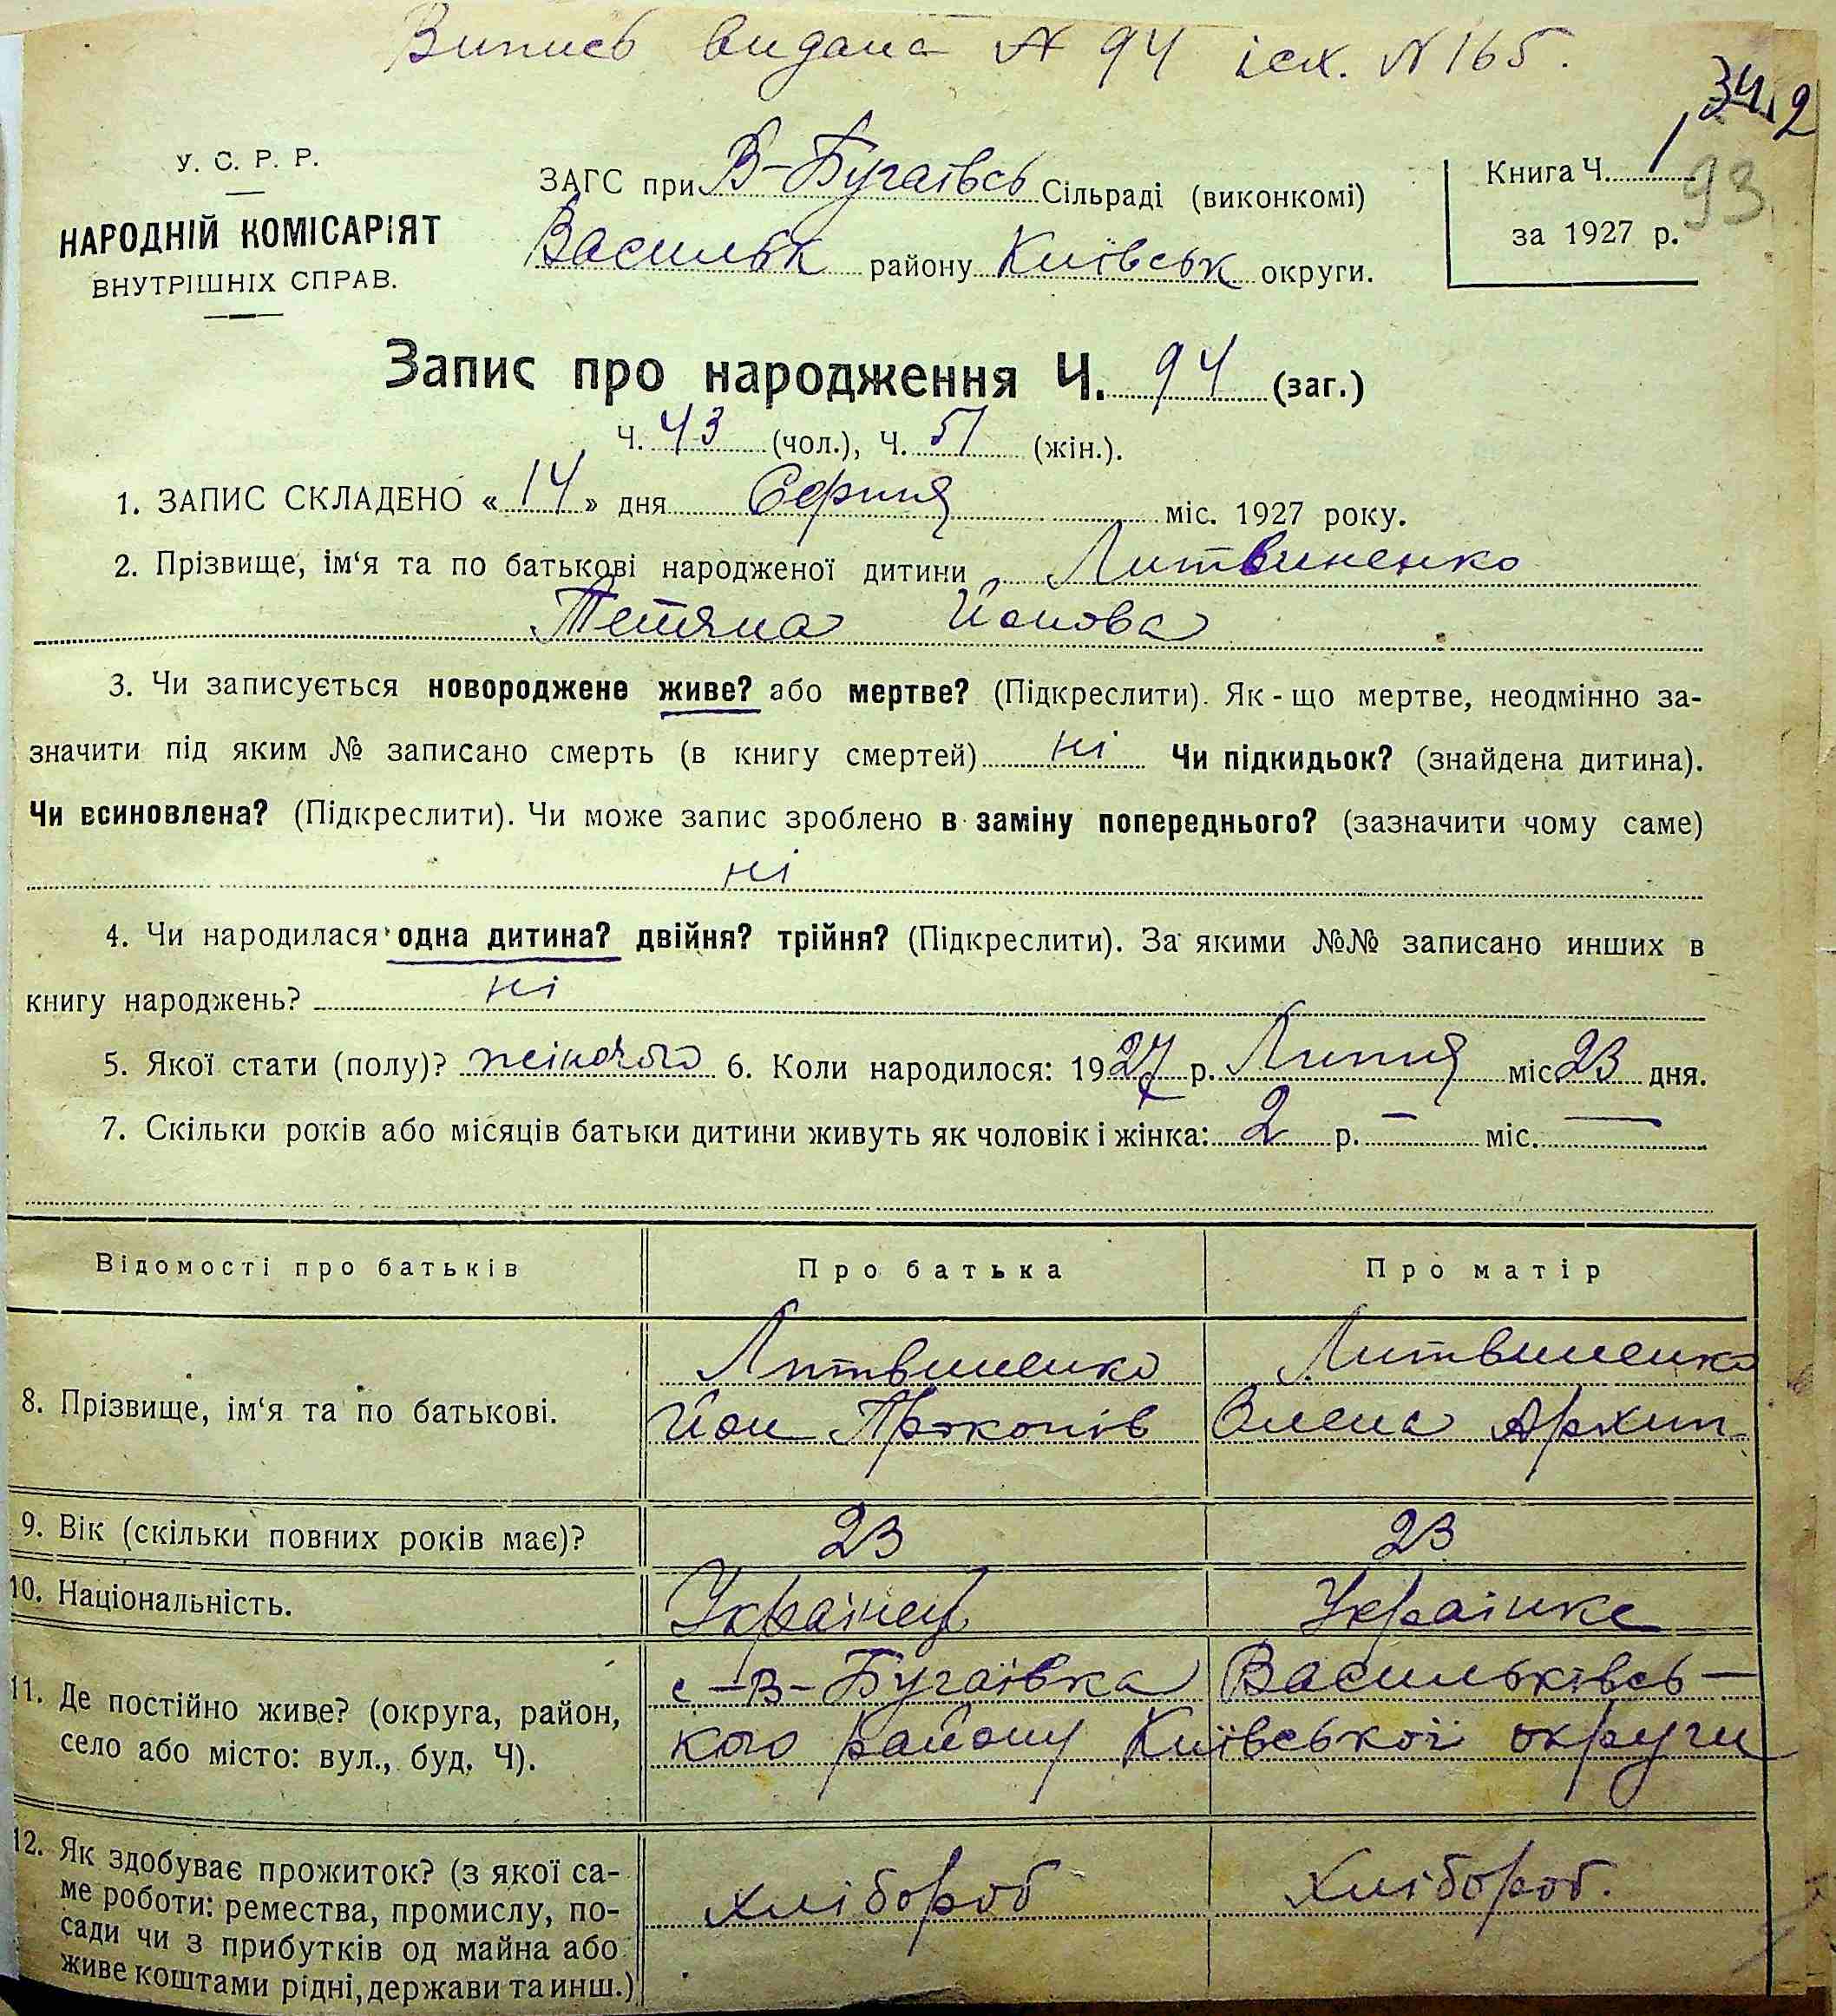 Випись видана № 94 ісх. № 165.
34.2
У. С. Р. Р.
НАРОДНІЙ КОМІСАРІЯТ
ВНУТРІШНІХ СПРАВ.
ЗАГС при В-Бугаївсь Сільраді (виконкомі)
Васильк району Київськ округи.
Книга Ч. 1
93
за 1927 р.
Запис про народження Ч. 94 (заг.)
Ч. 43 (чол.), Ч. 51 (жін.).
1. ЗАПИС СКЛАДЕНО « 14 » дня Серпня міс. 1927 року.
2. Прізвище, ім‘я та по батькові народженої дитини Литвиненко
Тетяна Йонова
3. Чи записується новороджене живе? або мертве? (Підкреслити). Як - що мертве, неодмінно за-
значити під яким № записано смерть (в книгу смертей) ні Чи підкидьок? (знайдена дитина).
Чи всиновлена? (Підкреслити). Чи може запис зроблено в заміну попереднього? (зазначити чому саме)
ні
4. Чи народилася одна дитина? двійня? трійня? (Підкреслити). За якими №№ записано инших в
книгу народжень? ні
5. Якої стати (полу)? жіночого 6. Коли народилося: 1927 р. Липня міс. 23 дня.
7. Скільки років або місяців батьки дитини живуть як чоловік і жінка: 2 р. — міс. —
Відомості про батьків Про батька Про матір
8. Прізвище, ім‘я та по батькові.
Литвиненко
Йон Прокопів
Литвиненко
Олена Архип
9. Вік (скільки повних років має)? 23 23
10. Національність. Українець Українка
11. Де постійно живе? (округа, район,
село або місто: вул., буд. Ч).
с-В-Бугаївка Васильківсь—
кого району Київської округи
12. Як здобуває прожиток? (з якої са-
ме роботи: ремества, промислу, по-
сади чи з прибутків од майна або
живе коштами рідні, держави та инш.)
хлібороб
хлібороб.